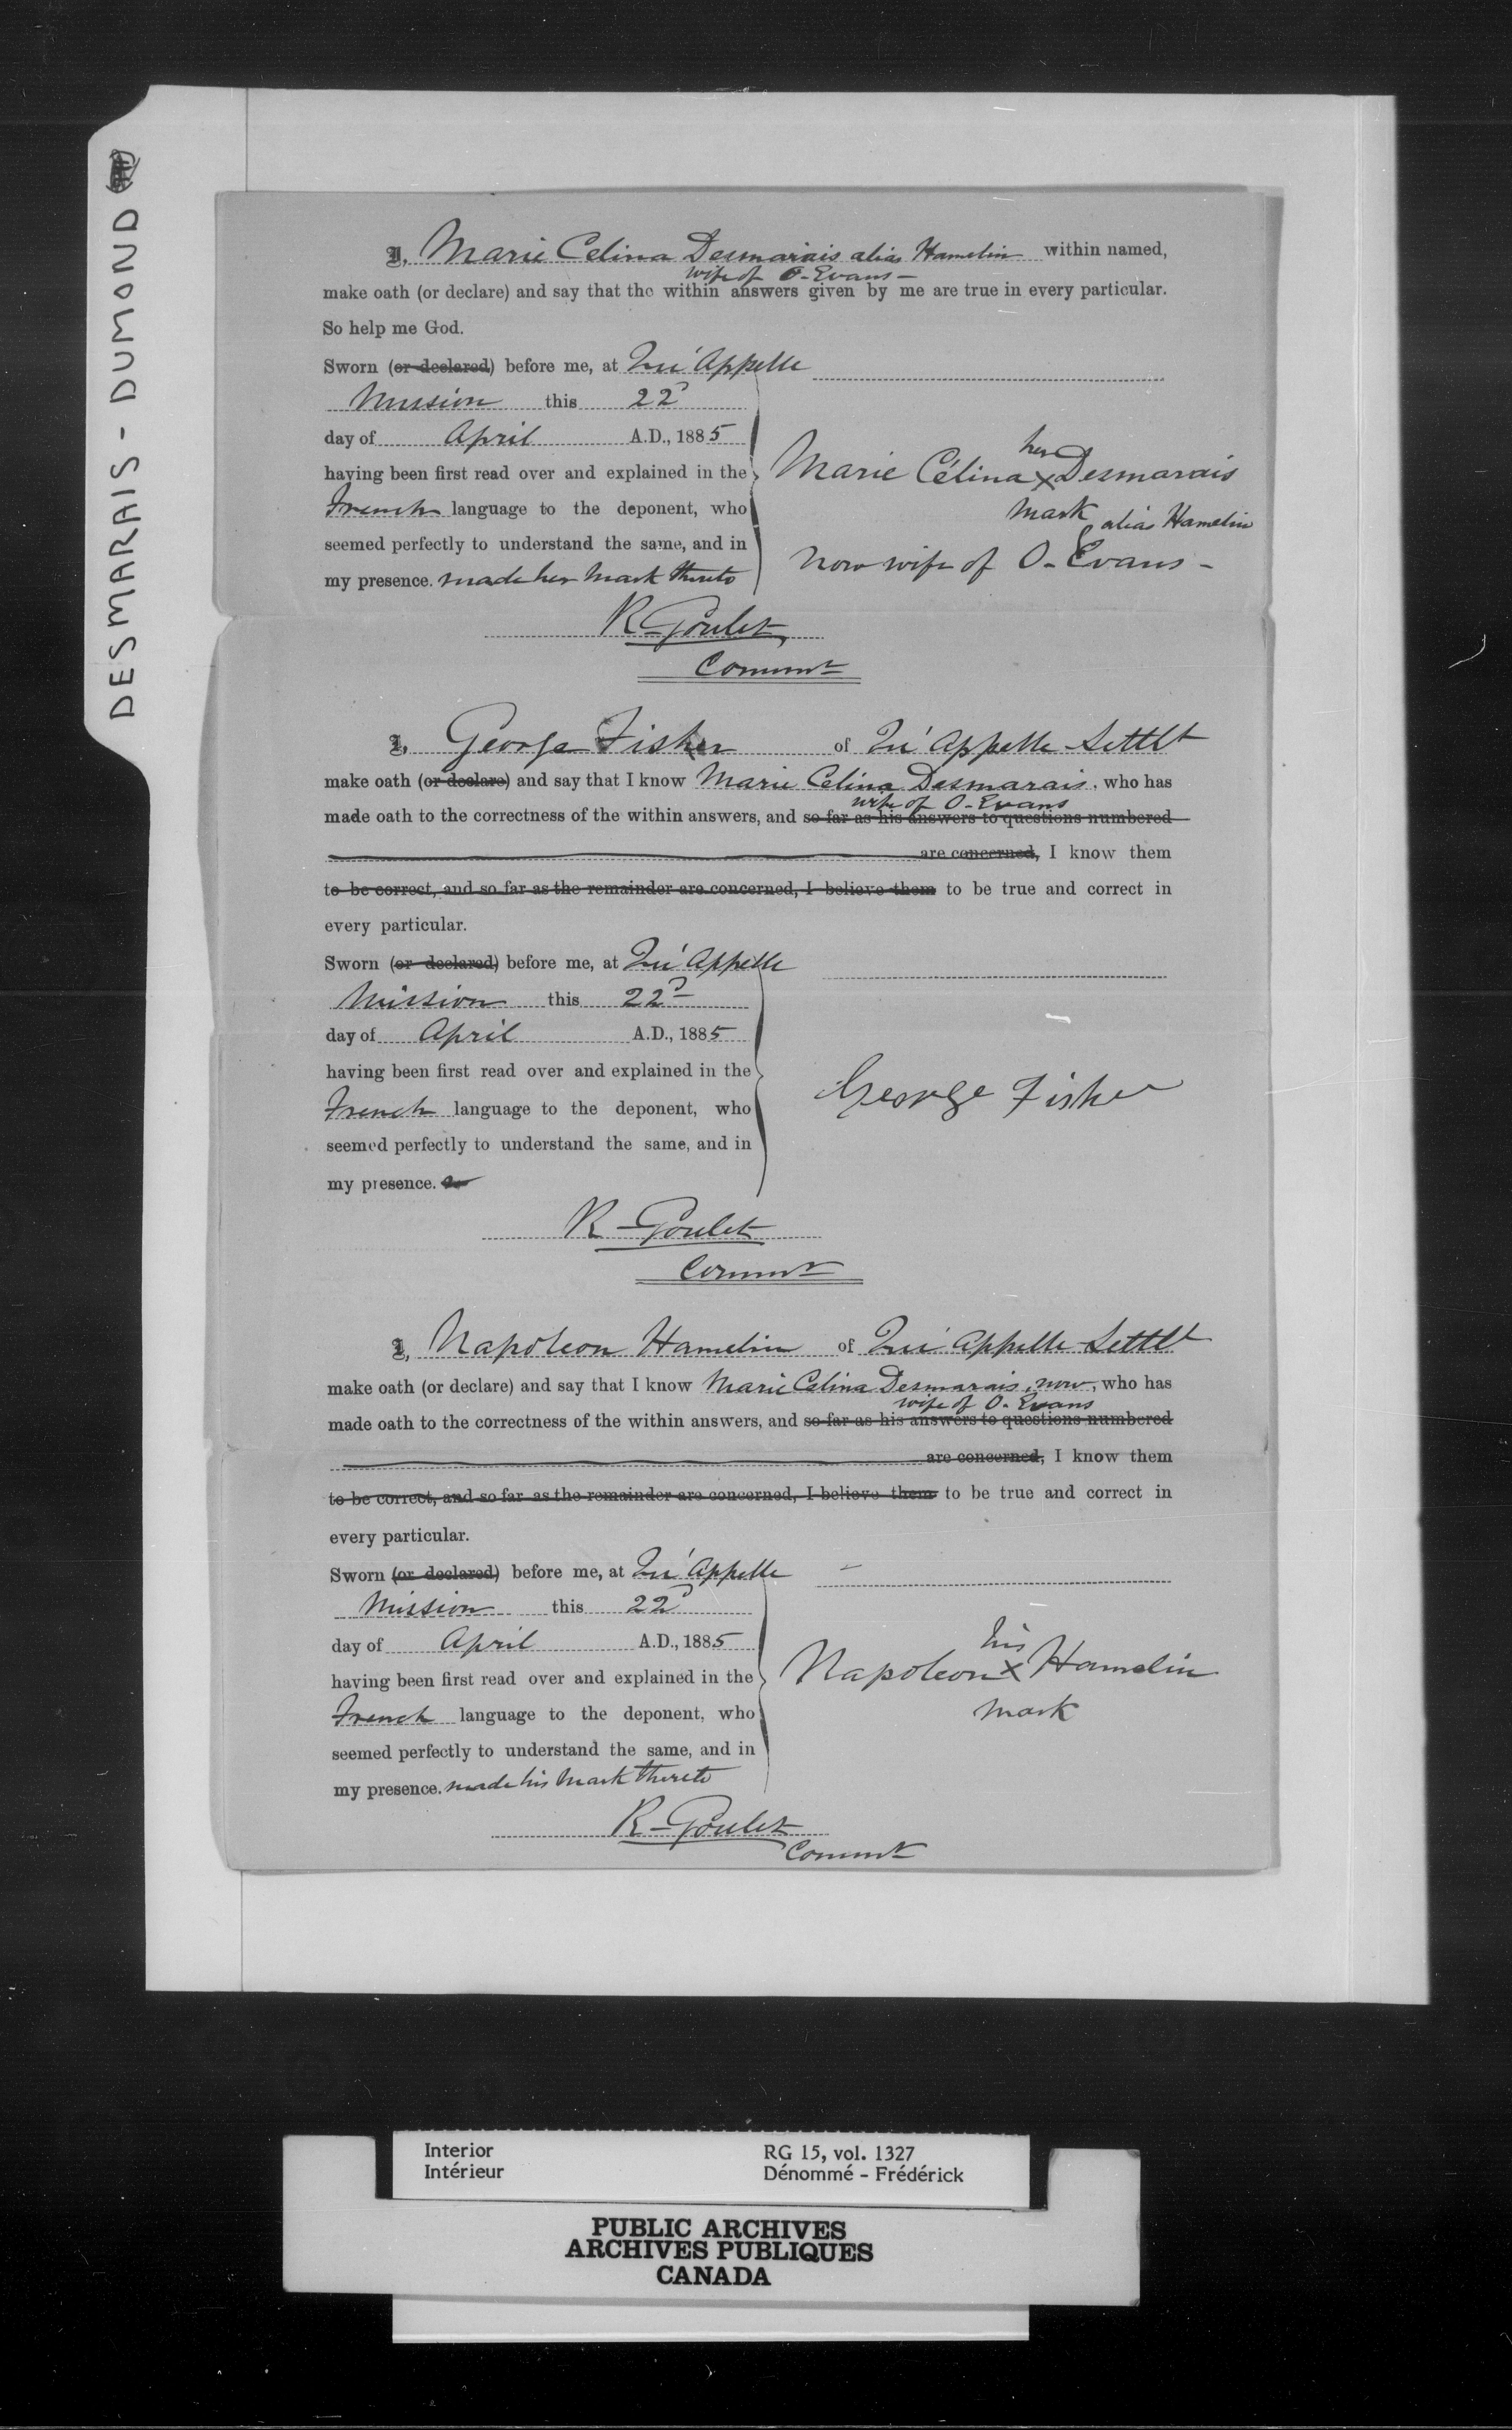 DESMARAIS - DUMOND
I, Marie Celina Desmarais alias Hamelin within named,
wife of O. Evans -
make oath (or declare) and say that the within answers given by me are true in every particular.
So help me God.
Sworn (or declared) before me, at Qu'Appelle
Mission this 22d
day of April A.D., 1885
having been first read over and explained in the
French language to the deponent, who
seemed perfectly to understand the same, and in
my presence. made her mark thereto
her
Marie Célina x Desmarais
mark alias Hamelin
now wife of O. Evans -
R. Goulet
Commr
I, George Fisher of Qu'Appelle Settlt
make oath (or declare) and say that I know Marie Celina Desmarais, who has
wife of O. Evans
made oath to the correctness of the within answers, and so far as his answers to questions numbered
are concerned, I know them
to be correct, and so far as the remainder are concerned, I believe them to be true and correct in
every particular.
Sworn (or declared) before me, at Qu'Appelle
Mission this 22d
day of April A.D., 1885
having been first read over and explained in the
French language to the deponent, who
seemed perfectly to understand the same, and in
my presence.
George Fisher
R. Goulet
Commr
I, Napoleon Hamelin of Qu'Appelle Settlt
make oath (or declare) and say that I know Marie Celina Desmarais, now, who has
wife of O. Evans
made oath to the correctness of the within answers, and so far as his answers to questions numbered
are concerned, I know them
to be correct, and so far as the remainder are concerned, I believe them to be true and correct in
every particular.
Sworn (or declared) before me, at Qu'Appelle
Mission this 22d
day of April A.D., 1885
having been first read over and explained in the
French language to the deponent, who
seemed perfectly to understand the same, and in
my presence. made his mark thereto
his
Napoleon x Hamelin
mark
R. Goulet
Commr
Interior RG 15, vol. 1327
Intérieur Dénommé - Frédérick
PUBLIC ARCHIVES
ARCHIVES PUBLIQUES
CANADA